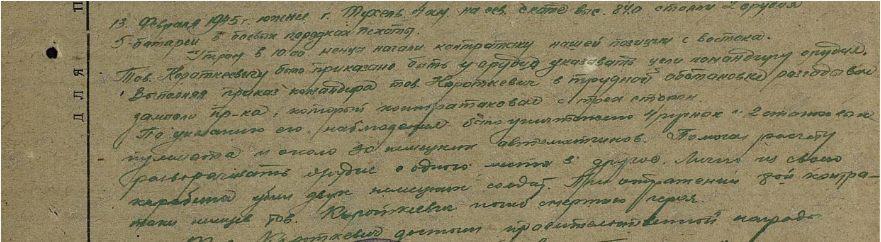 13. Февраля 1945 г. южнее г. Тухель, на сев. скате выс. 84.0 стояли 2 орудия
5 батареи в боевых порядках пехоты.
Утром в 10.00 немцы начали контратаку нашей позиции с востока.
Тов. Короткевичу было приказано быть у орудия указывать цели командиру орудия.
Выполняя приказ командира тов. Короткевич в трудной обстановке разгадывал
замысел пр-ка, который контратаковал с трех сторон.
По указанию его наблюдения было уничтожено 4 ручных и 2 станковых
пулемета и около 30 немецких автоматчиков. Помогая расчету
разворачивать орудие с одного места в другое. Лично из своего
карабина убил двух немецких солдат. При отражении контра-
таки немцев тов. Короткевич погиб смертью героя.
Тов. Короткевич достоин правительственной награды
ДЛЯ П